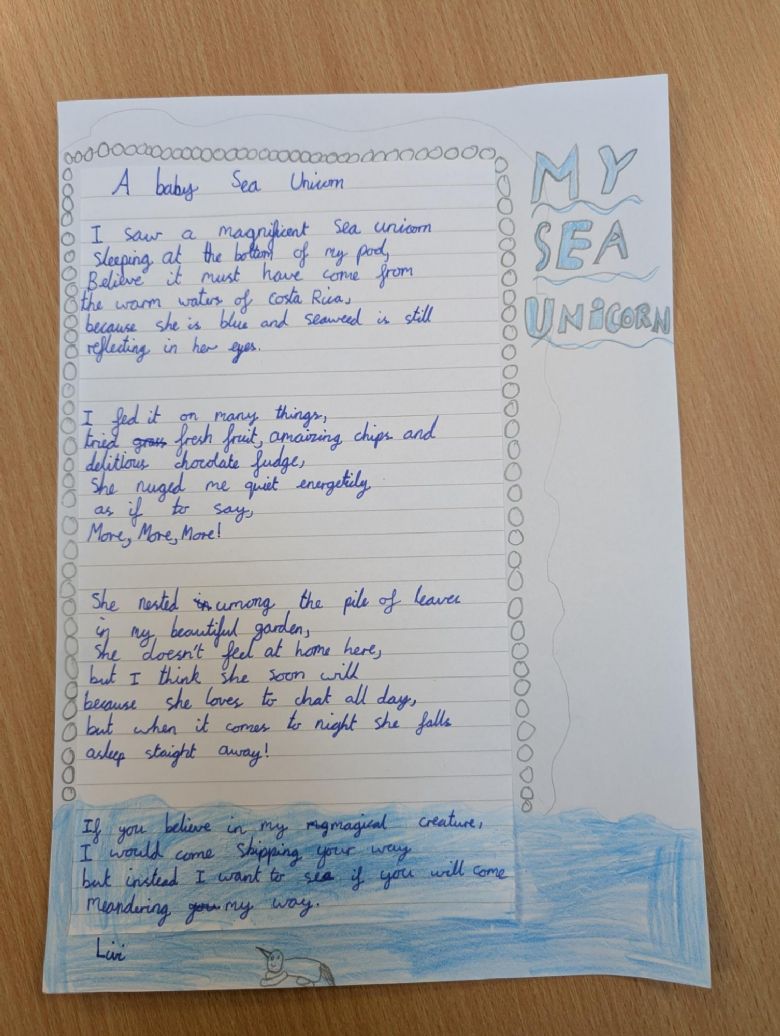 MY
SEA
UNICORN
A baby Sea Unicorn
I saw a magnificent sea unicorn
sleeping at the bottom of my pod,
Believe it must have come from
the warm waters of Costa Rica,
because she is blue and seaweed is still
reflecting in her eyes.
I fed it on many things,
tried grass fresh fruit, amaizing chips and
delitious chocolate fudge,
She nuged me quiet energeticly
as if to say,
More, More, More!
She nested in umong the pile of leaves
in my beautiful garden,
She doesn't feel at home here,
but I think she soon will
because she loves to chat all day,
but when it comes to night she falls
asleep staight away!
If you believe in my magical creature,
I would come skipping your way
but instead I want to see if you will come
meandering you my way.
Livi